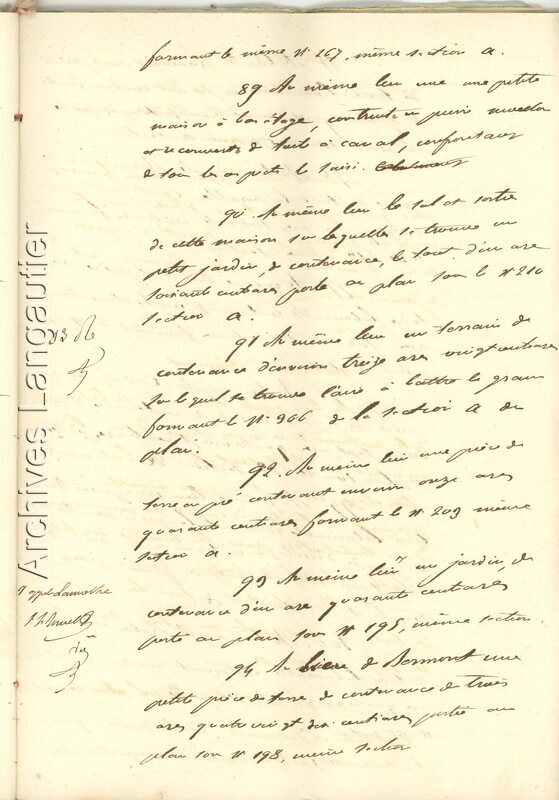 formant le même N° 267, même section A.
89 Au même lieu une une petite
maison à bas étage, construite en pierre
et recouverte de tuile à canal, confrontant
de tous les aspects le saisi.
90. Au même lieu le sol et sortie
de cette maison sur lesquelles se trouve un
petit jardin, de contenance, le tout d'un are
soixante centiares porté au plan sous le N° 210
section A.
91 Au même lieu un terrain de
contenance d'environ treize ares vingt centiares
sur lequel se trouve l'aire à battre le grain
formant le N° 306 de la section A du
plan.
92. Au même lieu une pièce de
terre en pré contenant environ onze ares
quarante centiares formant le N° 209 même
section A.
93 Au même lieu un jardin, de
contenance d'un are quarante centiares
porté au plan sous N° 195, même section.
94 Au de Bormont une
petite pièce de terre de contenance de trois
ares quatre vingt dix centiares portée au
plan sous N° 198, même section
Archives Langautier
appelé Lamothe